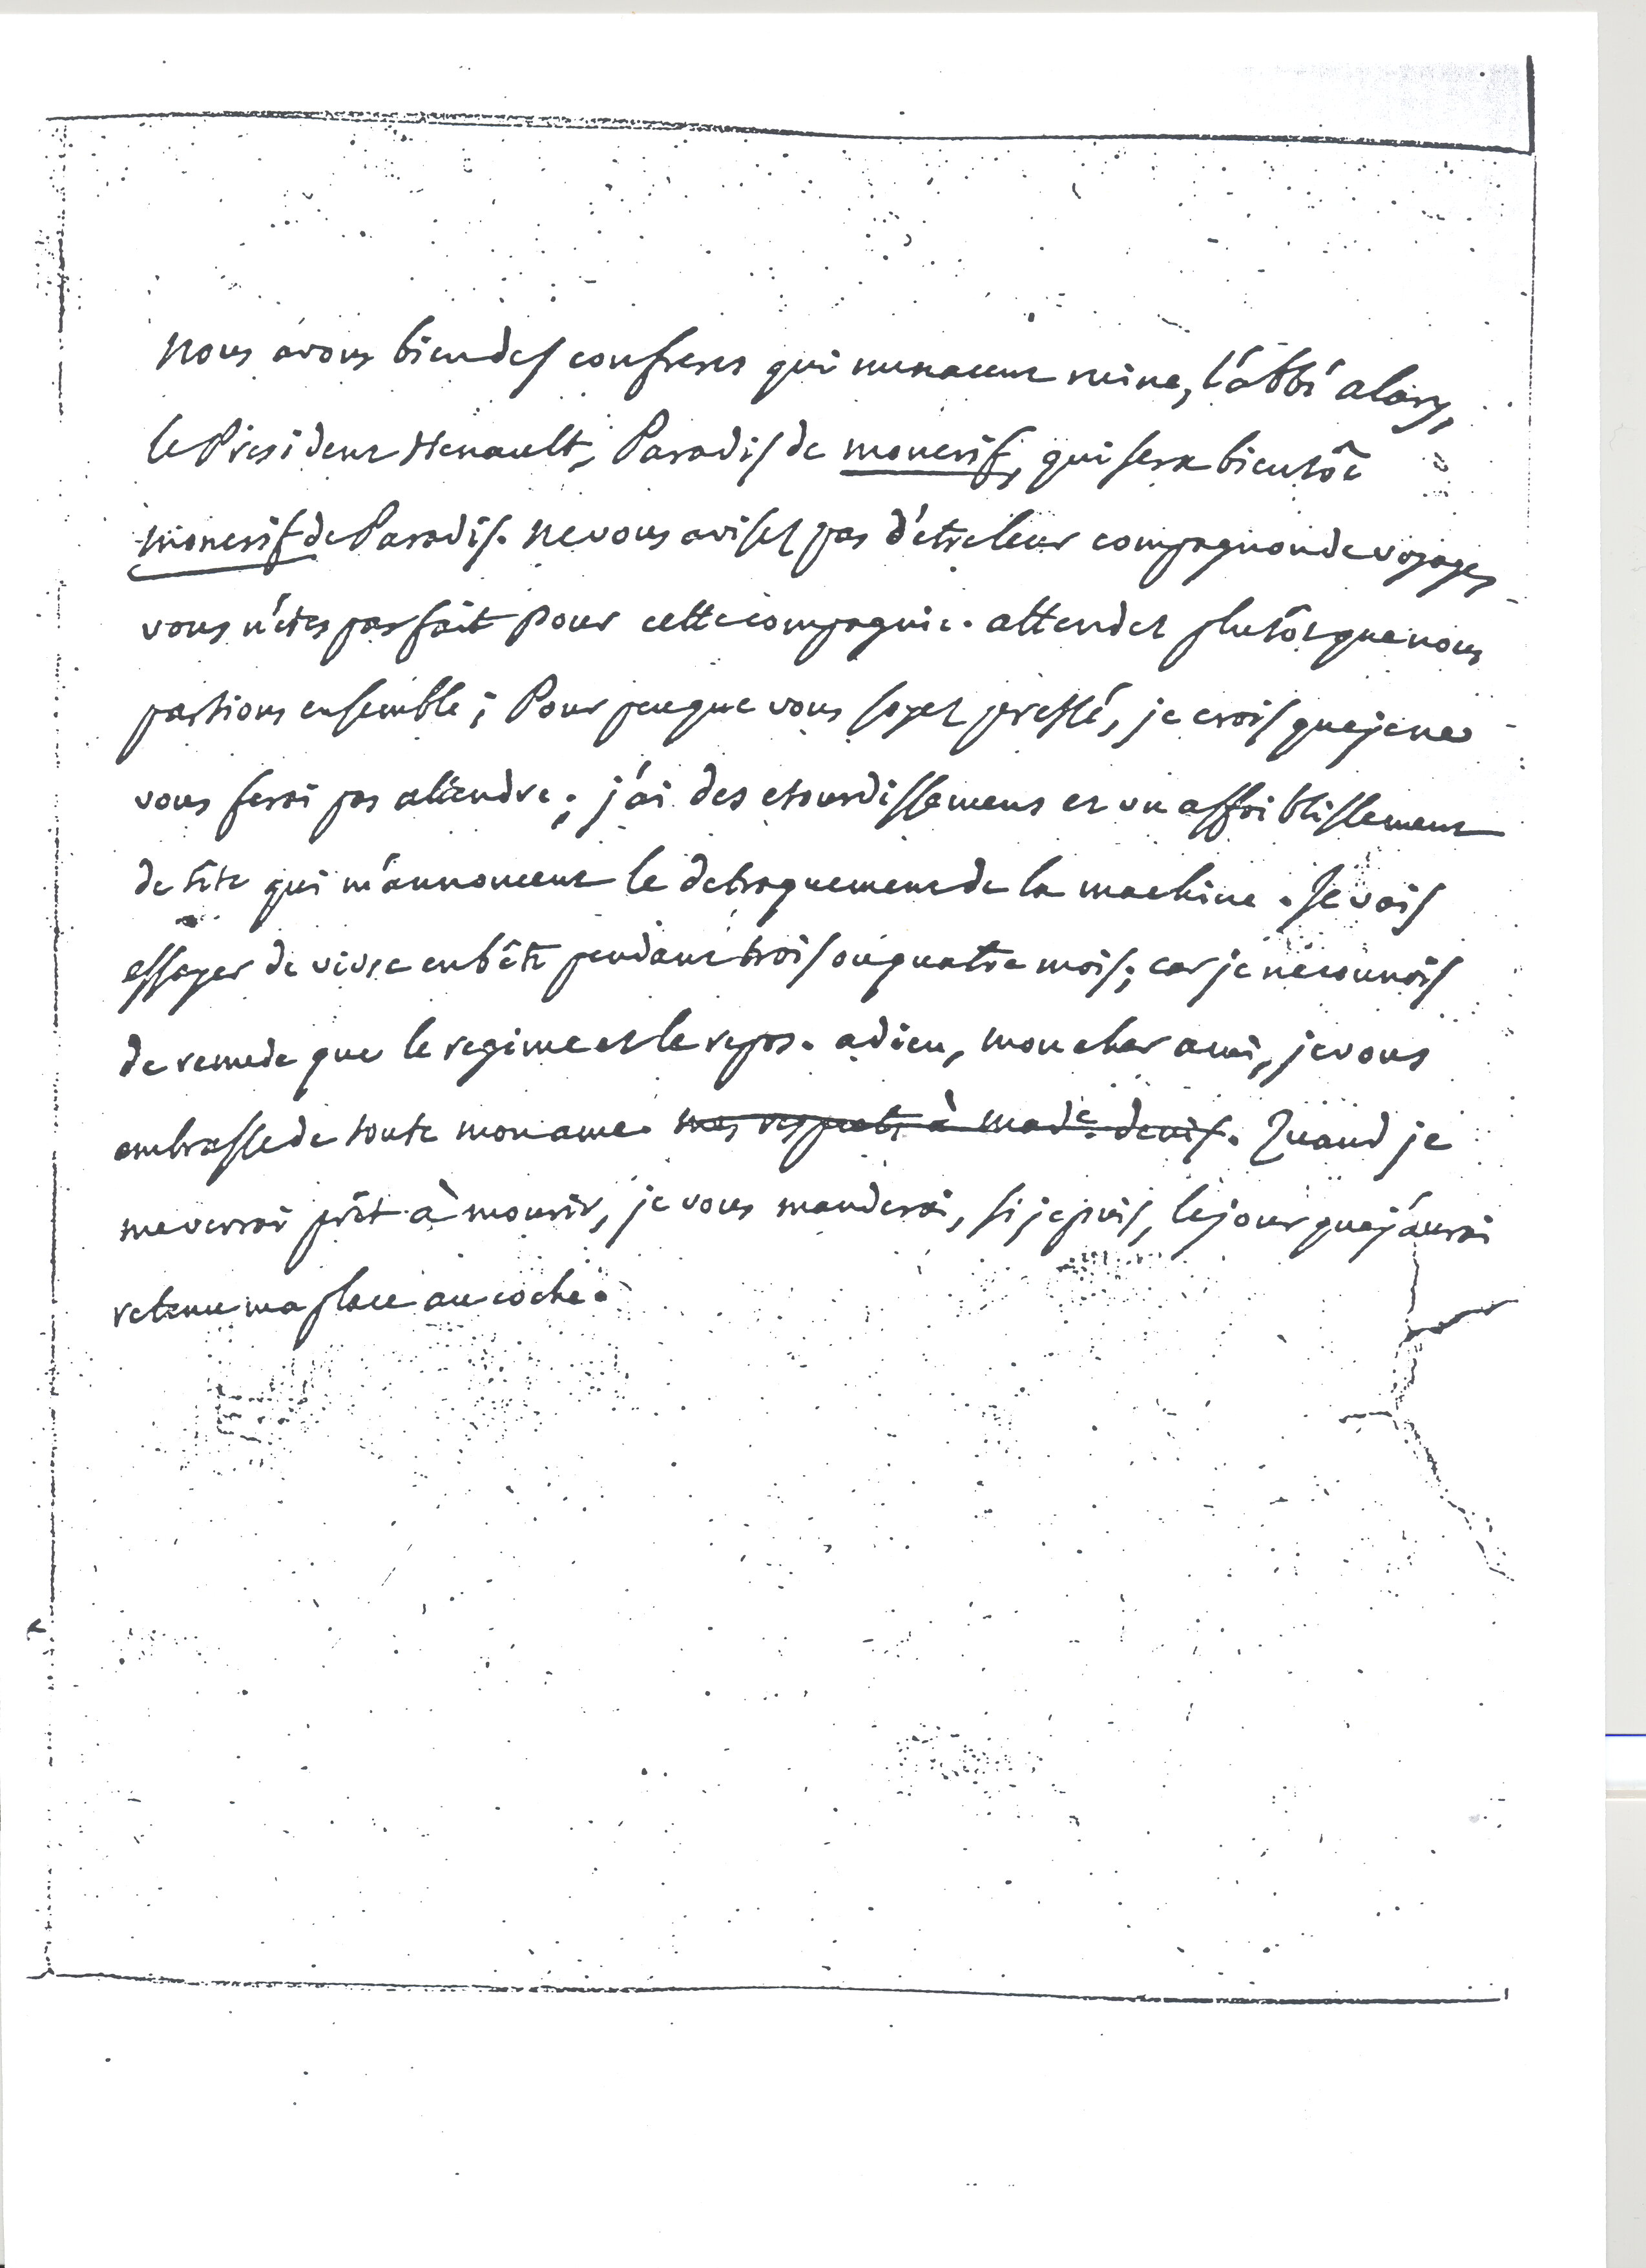 nous avons bien des confreres qui menacent ruine, l'abbé alary,
le President Henault, Paradis de moncrif, qui sera bientôt
moncrif de Paradis. ne vous avisez pas d'etre leur compagnon de voyage,
vous n'étes pas fait pour cette compagnie. attendez plutôt que nous
partions ensemble; Pour peu que vous soyez pressé, je crois que je ne
vous ferai pas attendre; j'ai des etourdissemens et un affoiblissement
de tête qui m'annoncent le detraquement de la machine. Je vais
essayer de vivre en bête pendant trois ou quatre mois; car je ne connois
de remede que le regime et le repos. adieu, mon cher ami, je vous
embrasse de toute mon ame. mes respects à made. denis. Quand je
me verrai prêt à mourir, je vous manderai, si je puis, le jour que j'aurai
retenu ma place au coche.